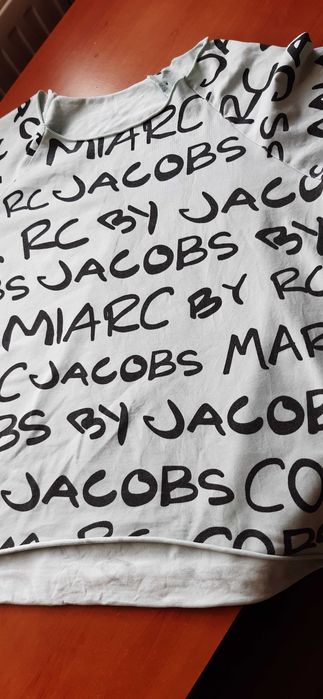 MIARC RC
RC JACOBS
RC BY JACO
BS JACOBS BY
MIARC BY RC
C JACOBS MAR
BS BY JACOB
JACOBS CO